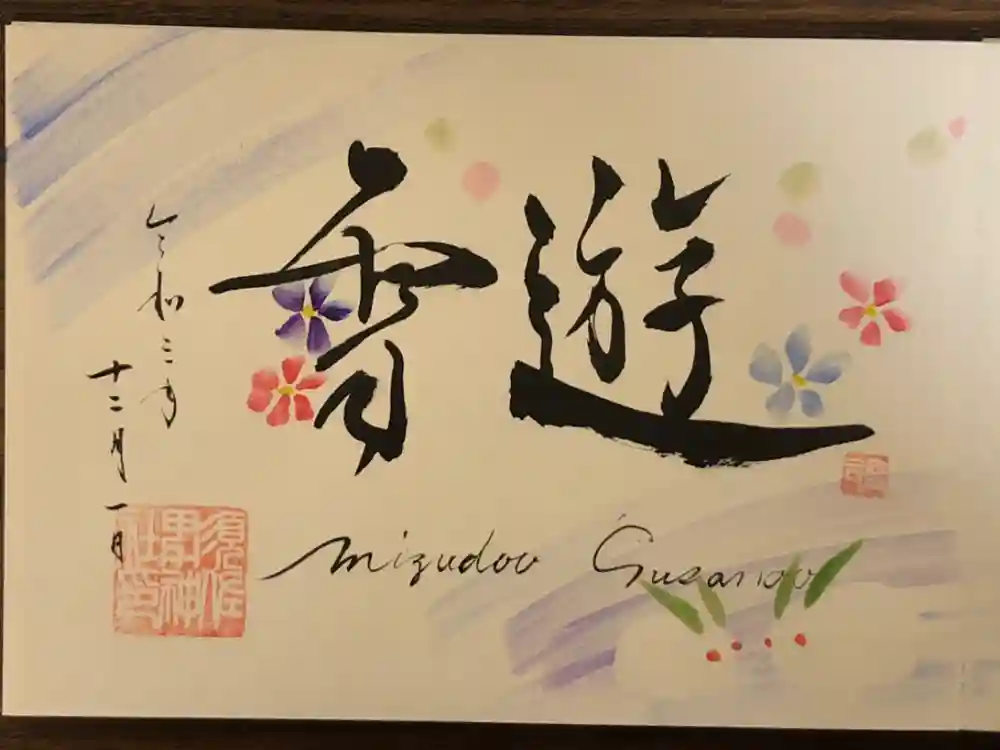 遊雪
令和三年
十二月一日
mizudoo Susanoo
須佐
男神
社印